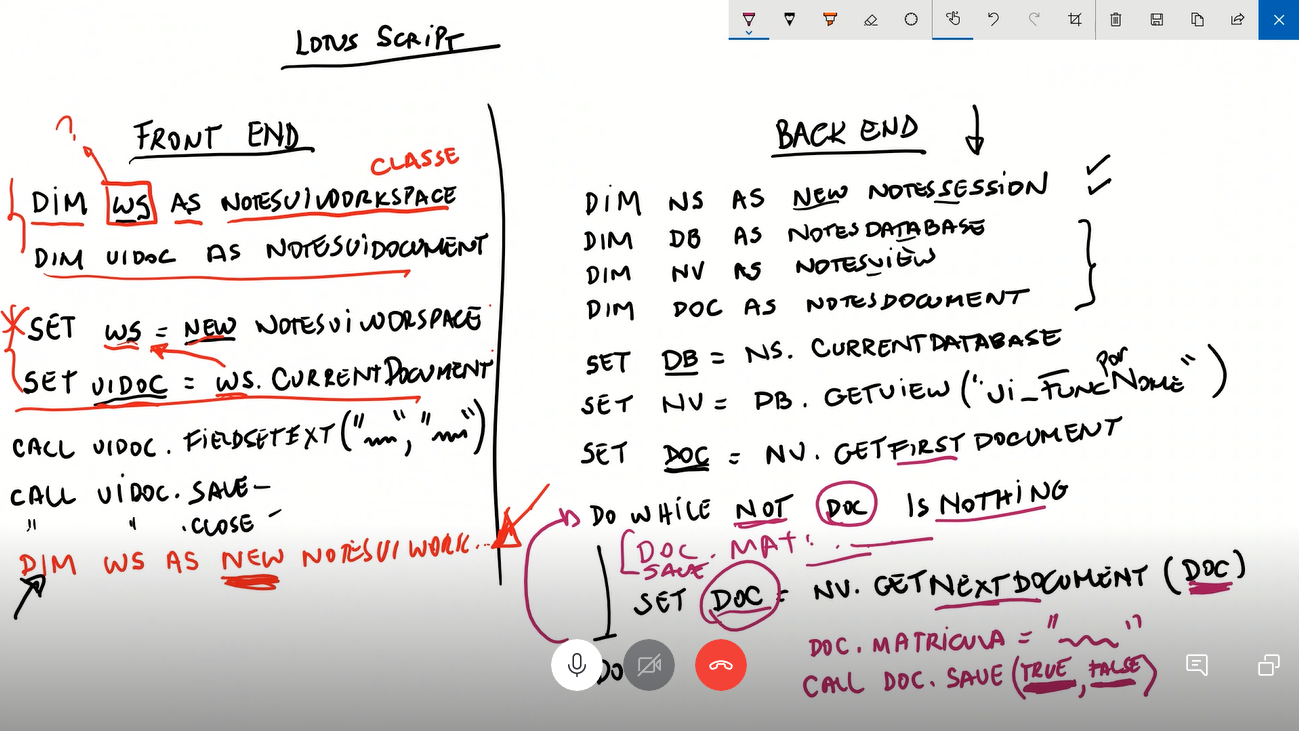 LOTUS SCRIPT
FRONT END
?
CLASSE
DIM WS AS NOTESUIWORKSPACE
DIM UIDOC AS NOTESUIDOCUMENT
SET WS = NEW NOTESUIWORSPACE
SET UIDOC = WS.CURRENTDOCUMENT
CALL UIDOC.FIELDSETEXT("~~", "~~")
CALL UIDOC.SAVE-
" " .CLOSE -
DIM WS AS NEW NOTESUIWORK...
BACK END
DIM NS AS NEW NOTESSESSION
DIM DB AS NOTESDATABASE
DIM NV AS NOTESVIEW
DIM DOC AS NOTESDOCUMENT
SET DB = NS.CURRENTDATABASE
SET NV = DB.GETVIEW("UI_FUNCPORNOME")
SET DOC = NV.GETFIRSTDOCUMENT
DO WHILE NOT DOC IS NOTHING
DOC.MAT...
SAVE
SET DOC = NV.GETNEXTDOCUMENT(DOC)
DOC.MATRICULA = "~~"
CALL DOC.SAVE(TRUE, FALSE)